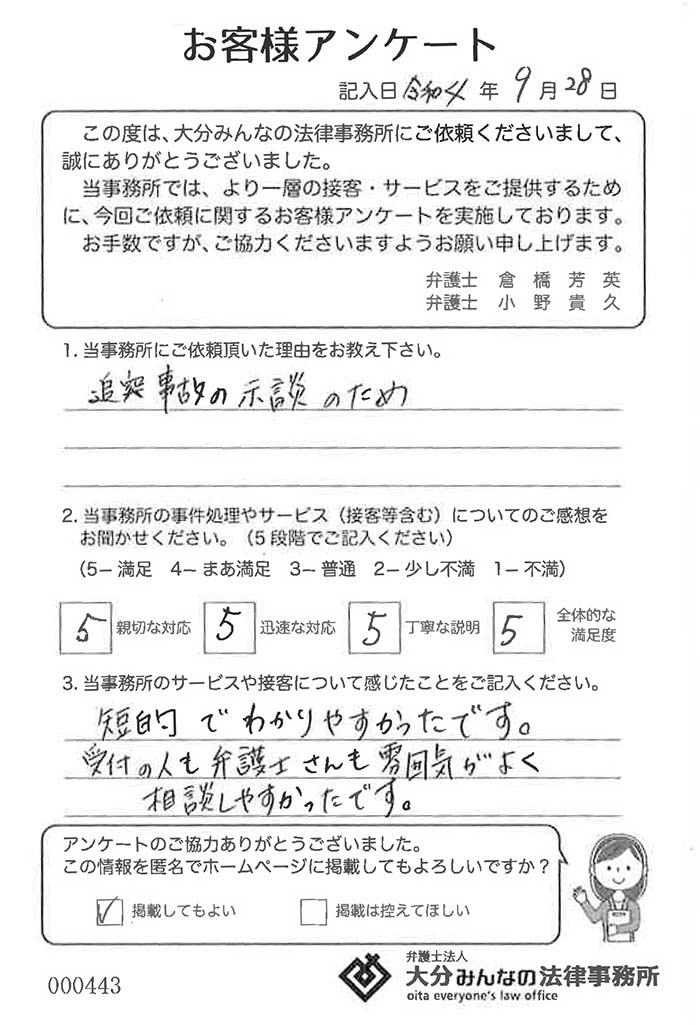 お客様アンケート
記入日 令和4 年 9 月 28 日
この度は、大分みんなの法律事務所にご依頼くださいまして、
誠にありがとうございました。
当事務所では、より一層の接客・サービスをご提供するため
に、今回ご依頼に関するお客様アンケートを実施しております。
お手数ですが、ご協力くださいますようお願い申し上げます。
弁護士 倉橋芳英
弁護士 小野貴久
1. 当事務所にご依頼頂いた理由をお教え下さい。
追突事故の示談のため
2. 当事務所の事件処理やサービス（接客等含む）についてのご感想を
お聞かせください。（5段階でご記入ください）
（5－満足 4－まあ満足 3－普通 2－少し不満 1－不満）
5 親切な対応 5 迅速な対応 5 丁寧な説明 5 全体的な
満足度
3. 当事務所のサービスや接客について感じたことをご記入ください。
短的でわかりやすかったです。
受付の人も弁護士さんも雰囲気がよく
相談しやすかったです。
アンケートのご協力ありがとうございました。
この情報を匿名でホームページに掲載してもよろしいですか？
✓ 掲載してもよい 掲載は控えてほしい
000443
弁護士法人
大分みんなの法律事務所
oita everyone's law office